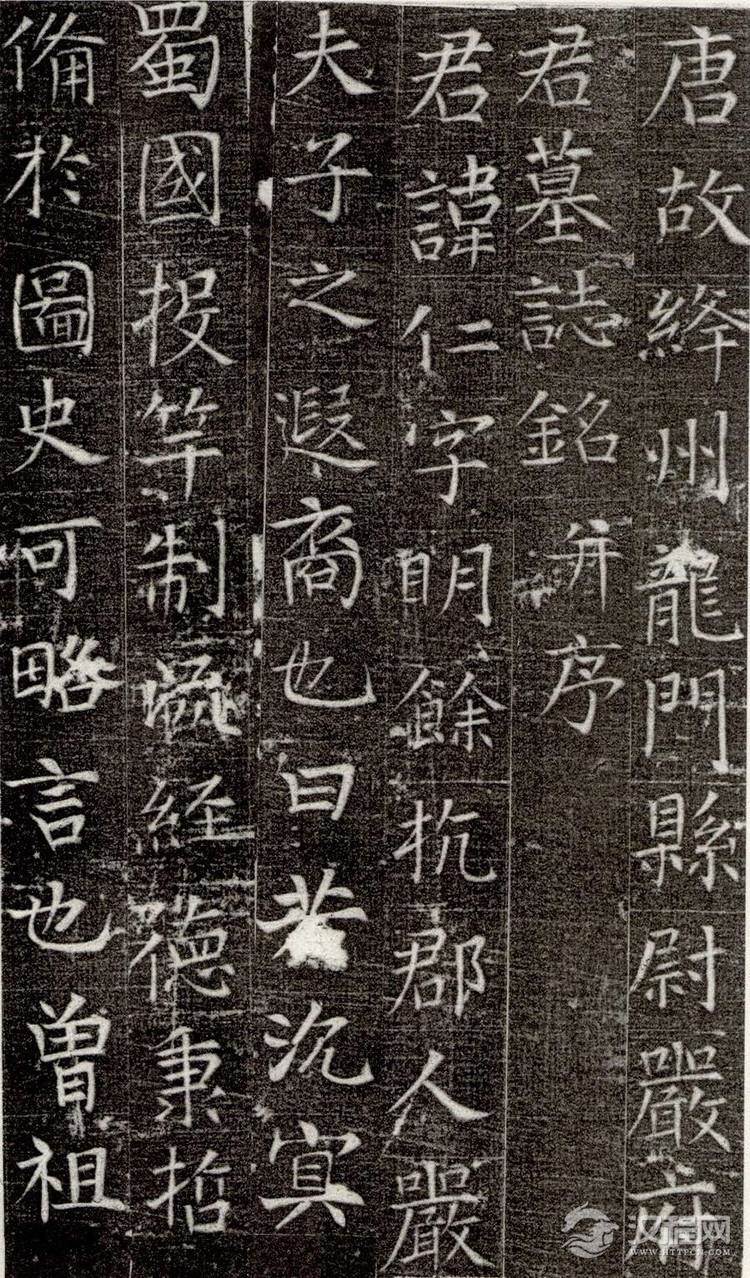 唐故絳州龍門縣尉嚴府
君墓誌銘并序
君諱仁字明餘杭郡人嚴
夫子之遐裔也曰若沉冥
蜀國投竿制經德秉哲
備於圖史可略言也曽祖
汉程网
WWW.HTTPCN.COM